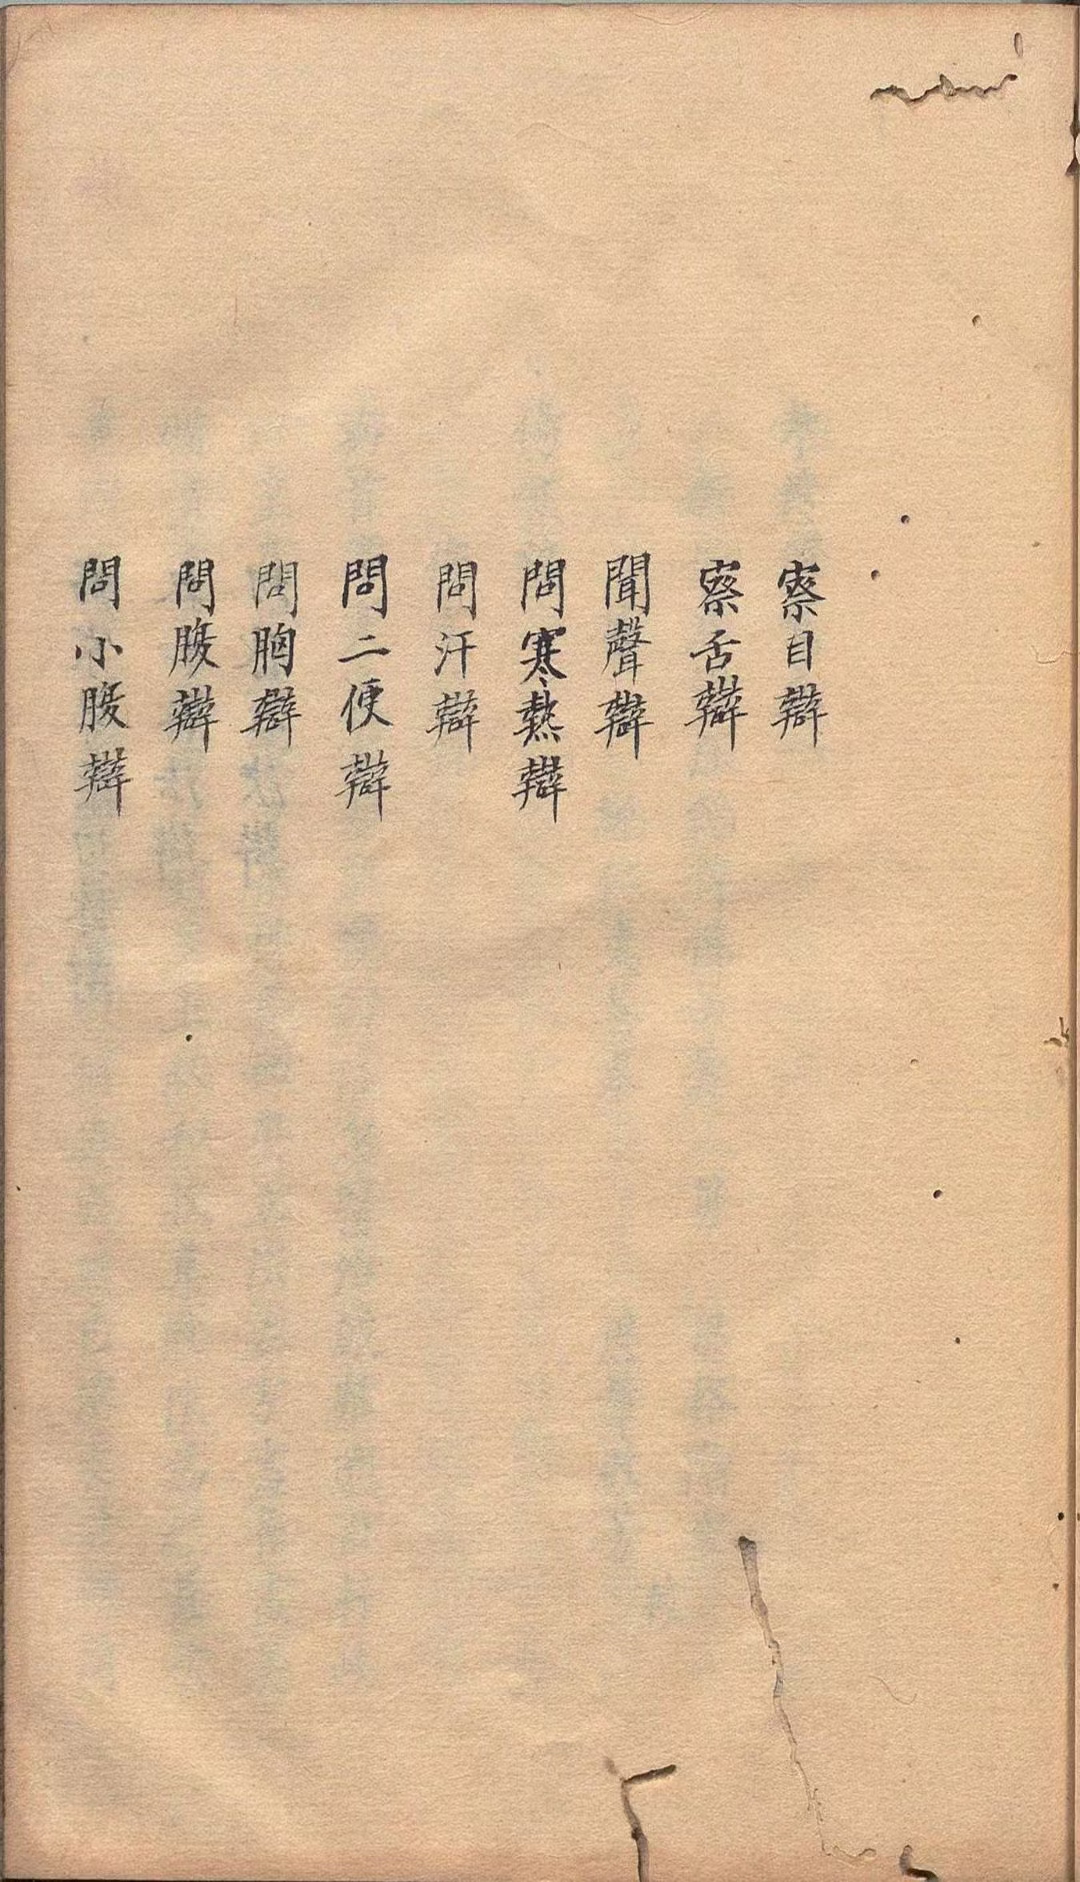 察目辯
察舌辯
聞聲辯
問寒熱辯
問汗辯
問二便辯
問胸辯
問腹辯
問小腹辯